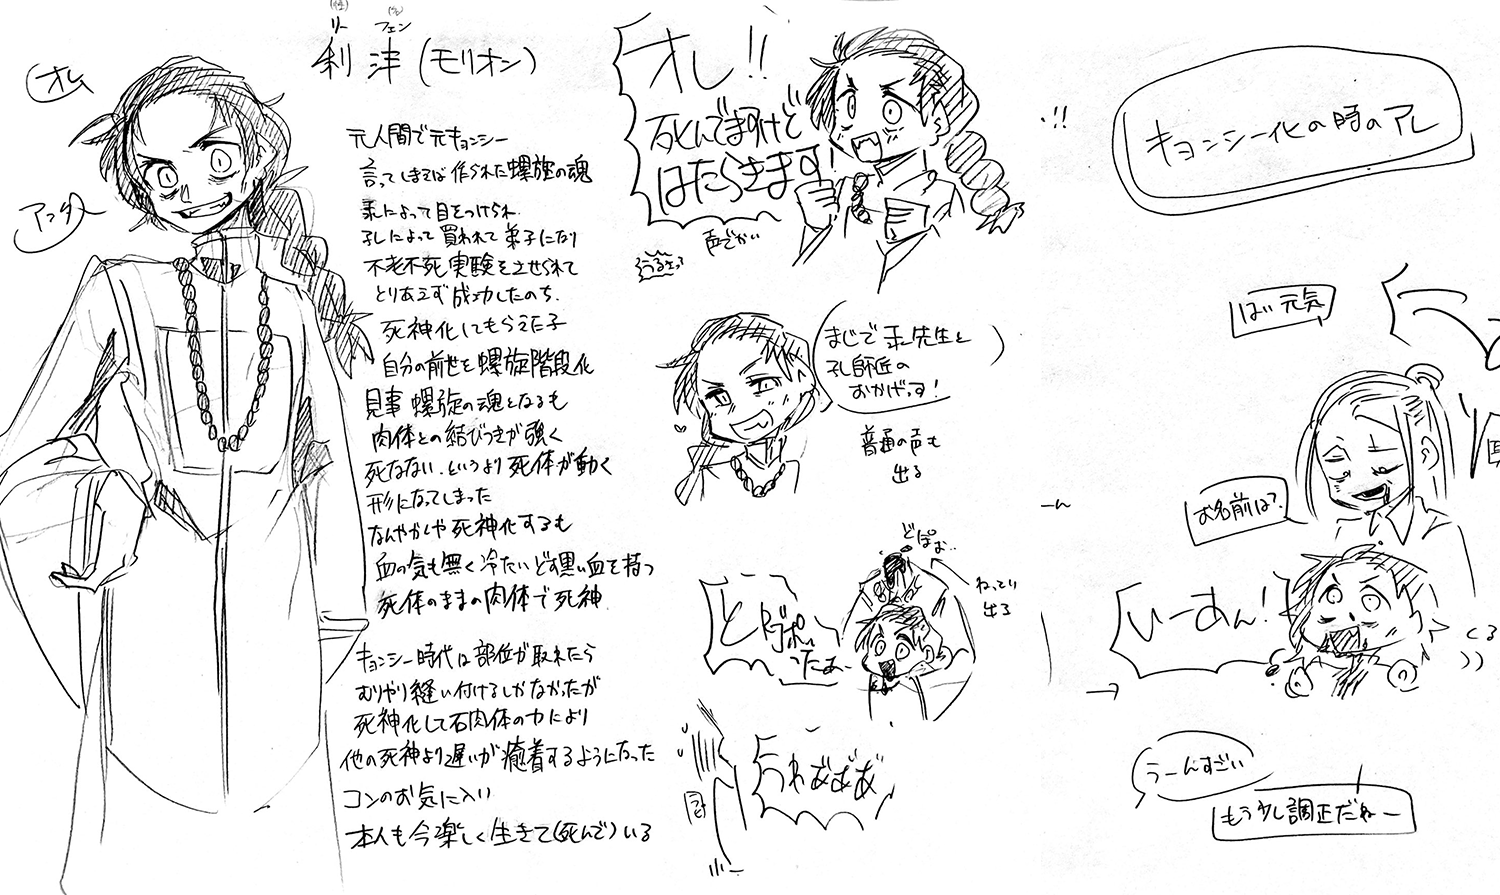 オレ
アンタ
リー フェン
利津(モリオン)
元人間で元キョンシー
言ってしまえば作られた螺旋の魂
によって目をつけられ
孔によって買われて弟子になり
不老不死実験をさせられて
とりあえず成功したのち、
死神化してもらえた子
自分の前世を螺旋階段化
見事螺旋の魂となるも
肉体との結びつきが強く
死なない、というより死体が動く
形になってしまった
なんやかんや死神化するも
血の気も無く冷たいどす黒い血を持つ
死体のままの肉体で死神
キョンシー時代は部位が取れたら
むりやり縫い付けるしかなかったが
死神化して石肉体の力により
他の死神より遅いが癒着するようになった
コンのお気に入い
本人も今楽しく生きて(死んで)いる
オレ!!
死んでますけど
はたらきます!
声でかい
うるせっ
まじで 先生と
孔師匠の
おかげっす!
普通の声も
出る
どぽぉ..
ねっとり
出る
うわぁぁぁ
キョンシー化の時のアレ
!!
はい元気
お名前は?
いーあん!
くる
うーんすごい
もう少し調正だねー